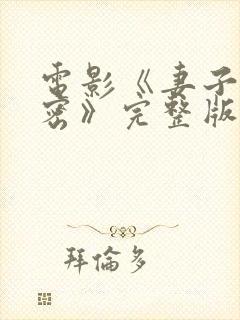 电影《妻子
密》完整版
拜倫多